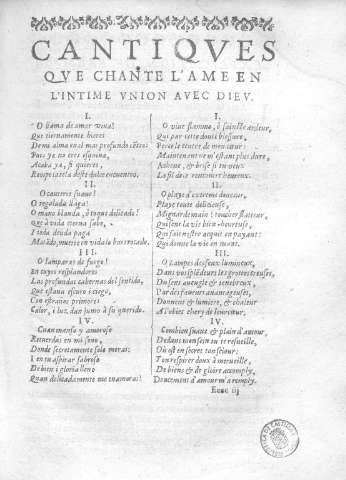 CANTIQVES
QVE CHANTE L'AME EN
L'INTIME VNION AVEC DIEV.
I.
O llama de amor viua!
Que tiernamente hieres
De mi alma en el mas profundo cẽtro:
Pues ya no eres esquiua,
Acaba ya, si quieres,
Rompe la tela deste dulce encuentro.
II.
O cauterio suaue!
O regalada llaga!
O mano blanda, ò toque delicado!
Que à vida eterna sabe,
I toda deuda paga
Matãdo, muerte en vida la has trocado.
III.
O lamparas de fuego!
En cuyos resplandores
Las profundas cabernas del sentido,
Que estaua oscuro i ciego,
Con estraños primores
Calor, i luz dan junto à su querido.
IV.
Cuan manso y amoroso
Recuerdas en mi seno,
Donde secretamente solo moras:
I en tu aspirar sabroso
De bien i gloria lleno
Quan delicadamente me enamoras!
I.
O viue flamme, ô saincte ardeur,
Qui par cette douce blessure,
Perce le centre de mon cœur:
Maintenant ne m'estant plus dure,
Acheue, & brise si tu veux
Le fil de ce rencontre heureux.
II.
O playe d'extreme douceur,
Playe toute delicieuse,
Mignarde main! toucher flatteur,
Qui sent la vie bien-heureuse,
Qui fais nostre acquit en payant:
Qui donne la vie en tuant.
III.
O lampes des feux lumineux,
Dans vos splẽdeurs les grottes creuses,
Du sens aueugle & tenebreux,
Par des faueurs auantageuses,
Donnent & lumiere, & chaleur
A l'obiet chery de leur cœur.
IV.
Combien suaue & plain d'amour,
Dedans mon sein tu te resueille,
Où est en secret ton sejour:
Ton respirer doux à merueille,
De biens & de gloire accomply,
Doucement d'amour m'a remply.
Eeee iij